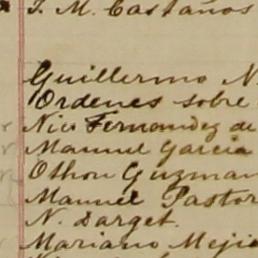 J. M. Castaños
Guillermo N.
Ordenes sobre
Nic Fernandez de
Manuel Garcia
Othon Guzman
Manuel Pastor
N. Darget.
Mariano Meji